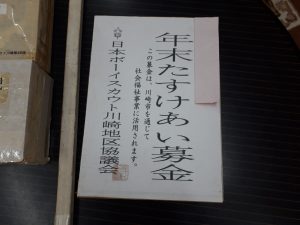 年末たすけあい募金
この募金は、川崎市を通じて
社会福祉事業に活用されます。
日本ボーイスカウト川崎地区協議会